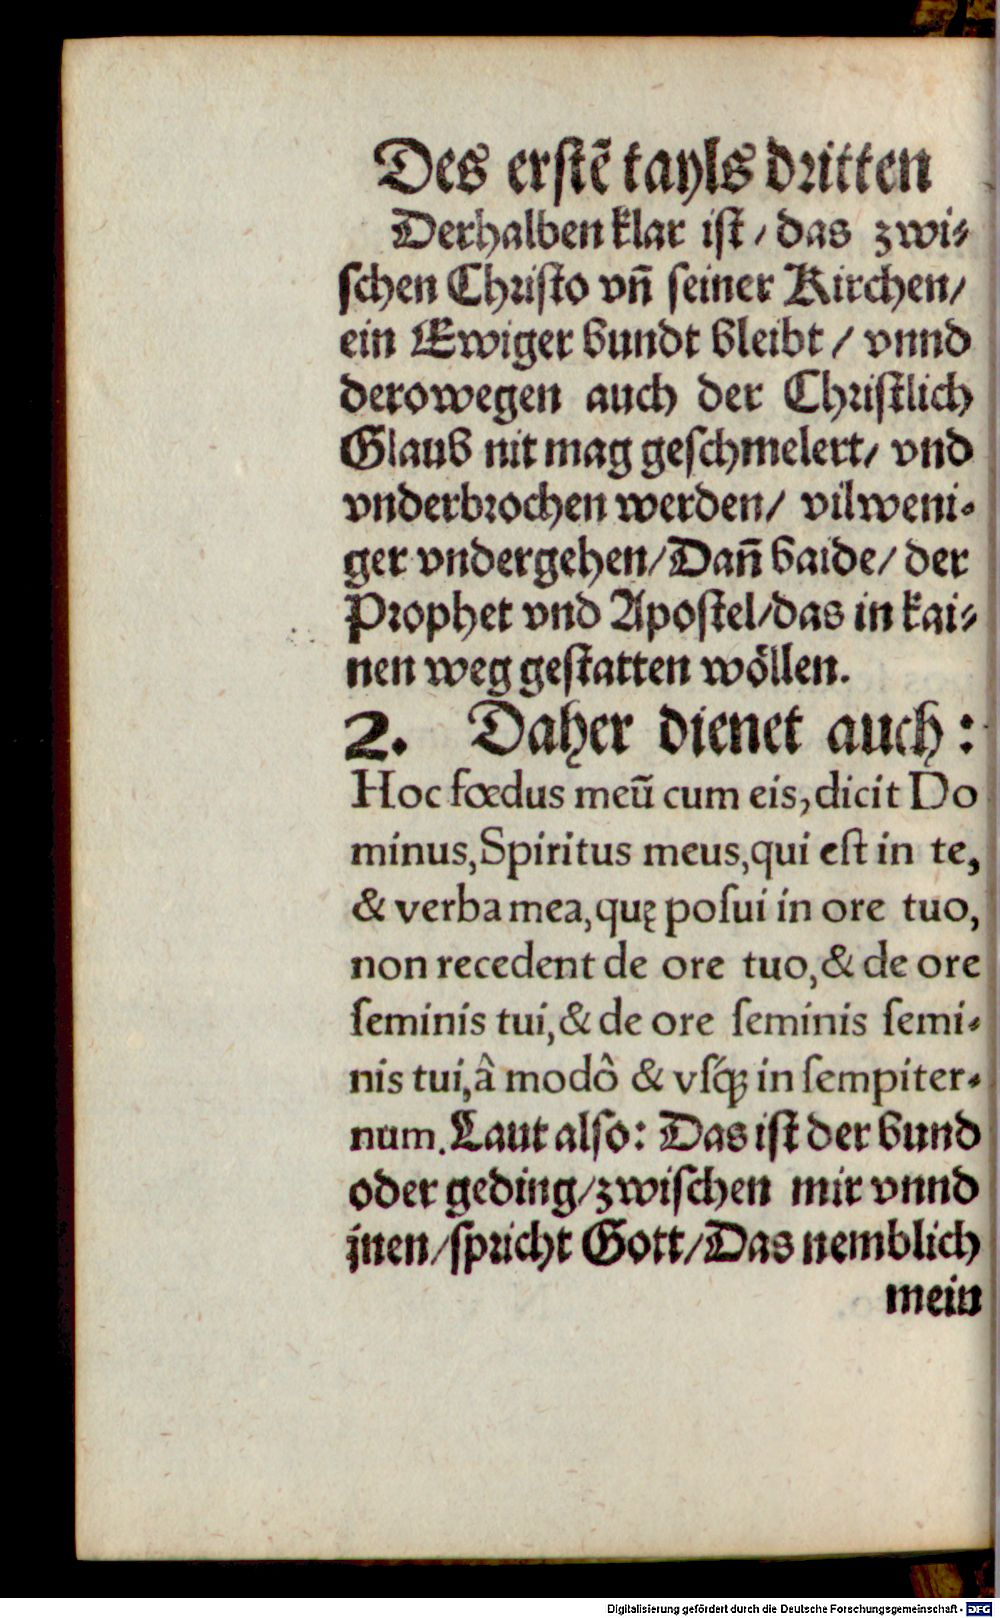 Des erstẽ tayls dritten
Derhalben klar ist / das zwi-
schen Christo vñ seiner Kirchen/
ein Ewiger bundt bleibt / vnnd
derowegen auch der Christlich
Glaub nit mag geschmelert/ vnd
vnderbrochen werden/ vilweni-
ger vndergehen/Dañ baide/ der
Prophet vnd Apostel/das in kai-
nen weg gestatten wöllen.
2. Daher dienet auch :
Hoc fœdus meũ cum eis, dicit Do
minus, Spiritus meus, qui est in te,
& verba mea, quę posui in ore tuo,
non recedent de ore tuo, & de ore
seminis tui, & de ore seminis semi-
nis tui, â modô & vsq́ꝫ in sempiter-
num. Laut also: Das ist der bund
oder geding/zwischen mir vnnd
jnen/spricht Gott/Das nemblich
mein
Digitalisierung gefördert durch die Deutsche Forschungsgemeinschaft - DFG